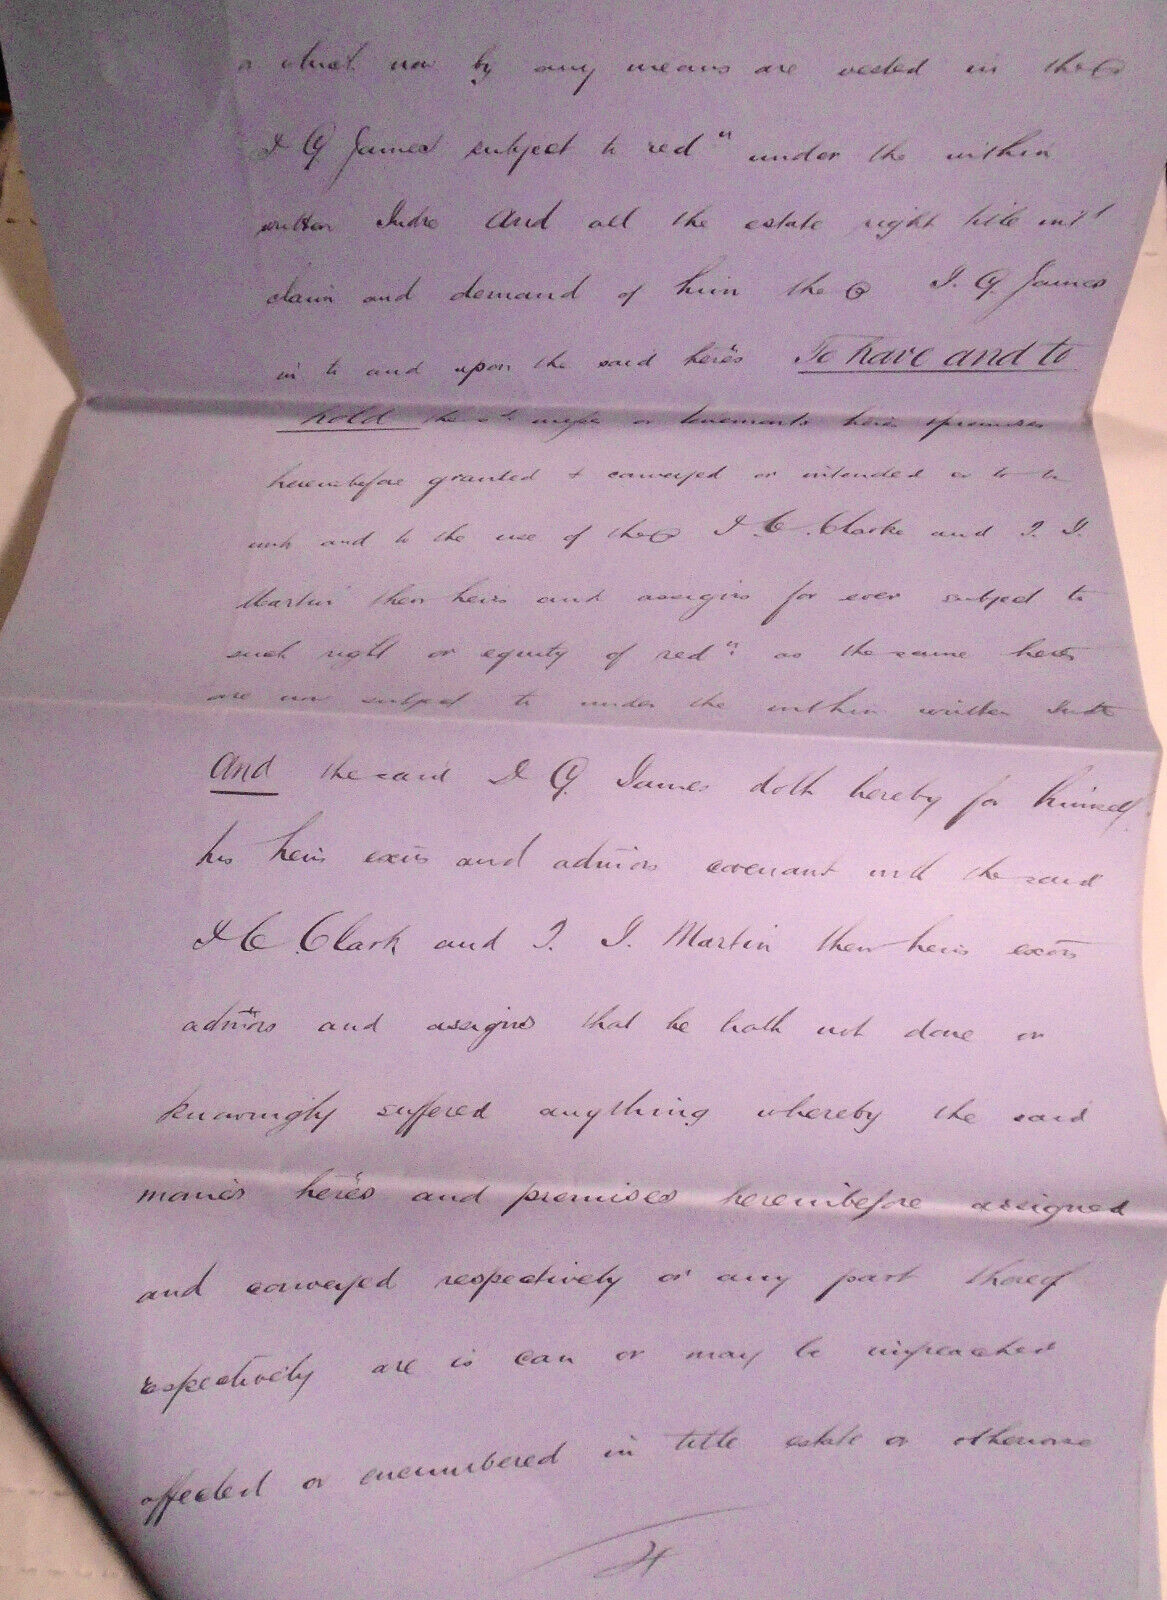 or which now by any means are vested in the
J G James subject to redⁿ under the within
written Indre and all the estate right title intt
claim and demand of him the J. G. James
in to and upon the said heres To have and to
hold the or tenements heres & premises
hereinbefore granted & conveyed or intended so to be
unto and to the use of the J C. Clarke and J. J.
Martin their heirs and assigns for ever subject to
such right or equity of redⁿ: as the same heres
are now subject to under the within written Indre
And the said J G. James doth hereby for himself
his heirs exōrs and admōrs covenant with the said
J C. Clark and J. J. Martin their heirs exōrs
admōrs and assigns that he hath not done or
knowingly suffered anything whereby the said
monies heres and premises hereinbefore assigned
and conveyed respectively or any part thereof
respectively are is can or may be impeached
affected or encumbered in title estate or otherwise